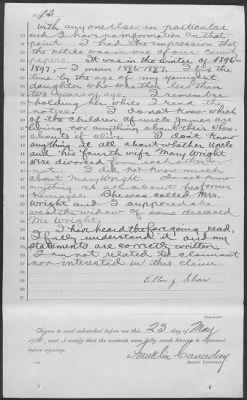 with any one else in particular
and I have no information on that
point. I had the impression that
the notice was in one of our
papers. It was in the winter of 1896-
1897, I mean 1886-1887. I fix the
time by the age of my youngest
daughter who was then less than
two years of age. I remember
holding her while I read the
notice. I do not know which
of the children of uncle James are
living nor anything about their where
abouts if alive. I don't know
anything at all about whether uncle
and his fourth wife Mary Wright
were divorced from each other or
not. I did not know much
about Mary Wright. Do not know
anything at all about her former
marriages. She was called Mrs.
Wright and I supposed she
was the widow of some deceased
Mr Wright.
I have heard the foregoing read,
I fully understand it and my
statements are correctly written.
I am not related to claimant
nor interested in this claim.
Ellen J Shaw
Deponent.
Sworn to and subscribed before me this 23 day of May
and I certify that the contents were fully made known to deponent
before signing.
Franklin Canaday
Special Examiner.